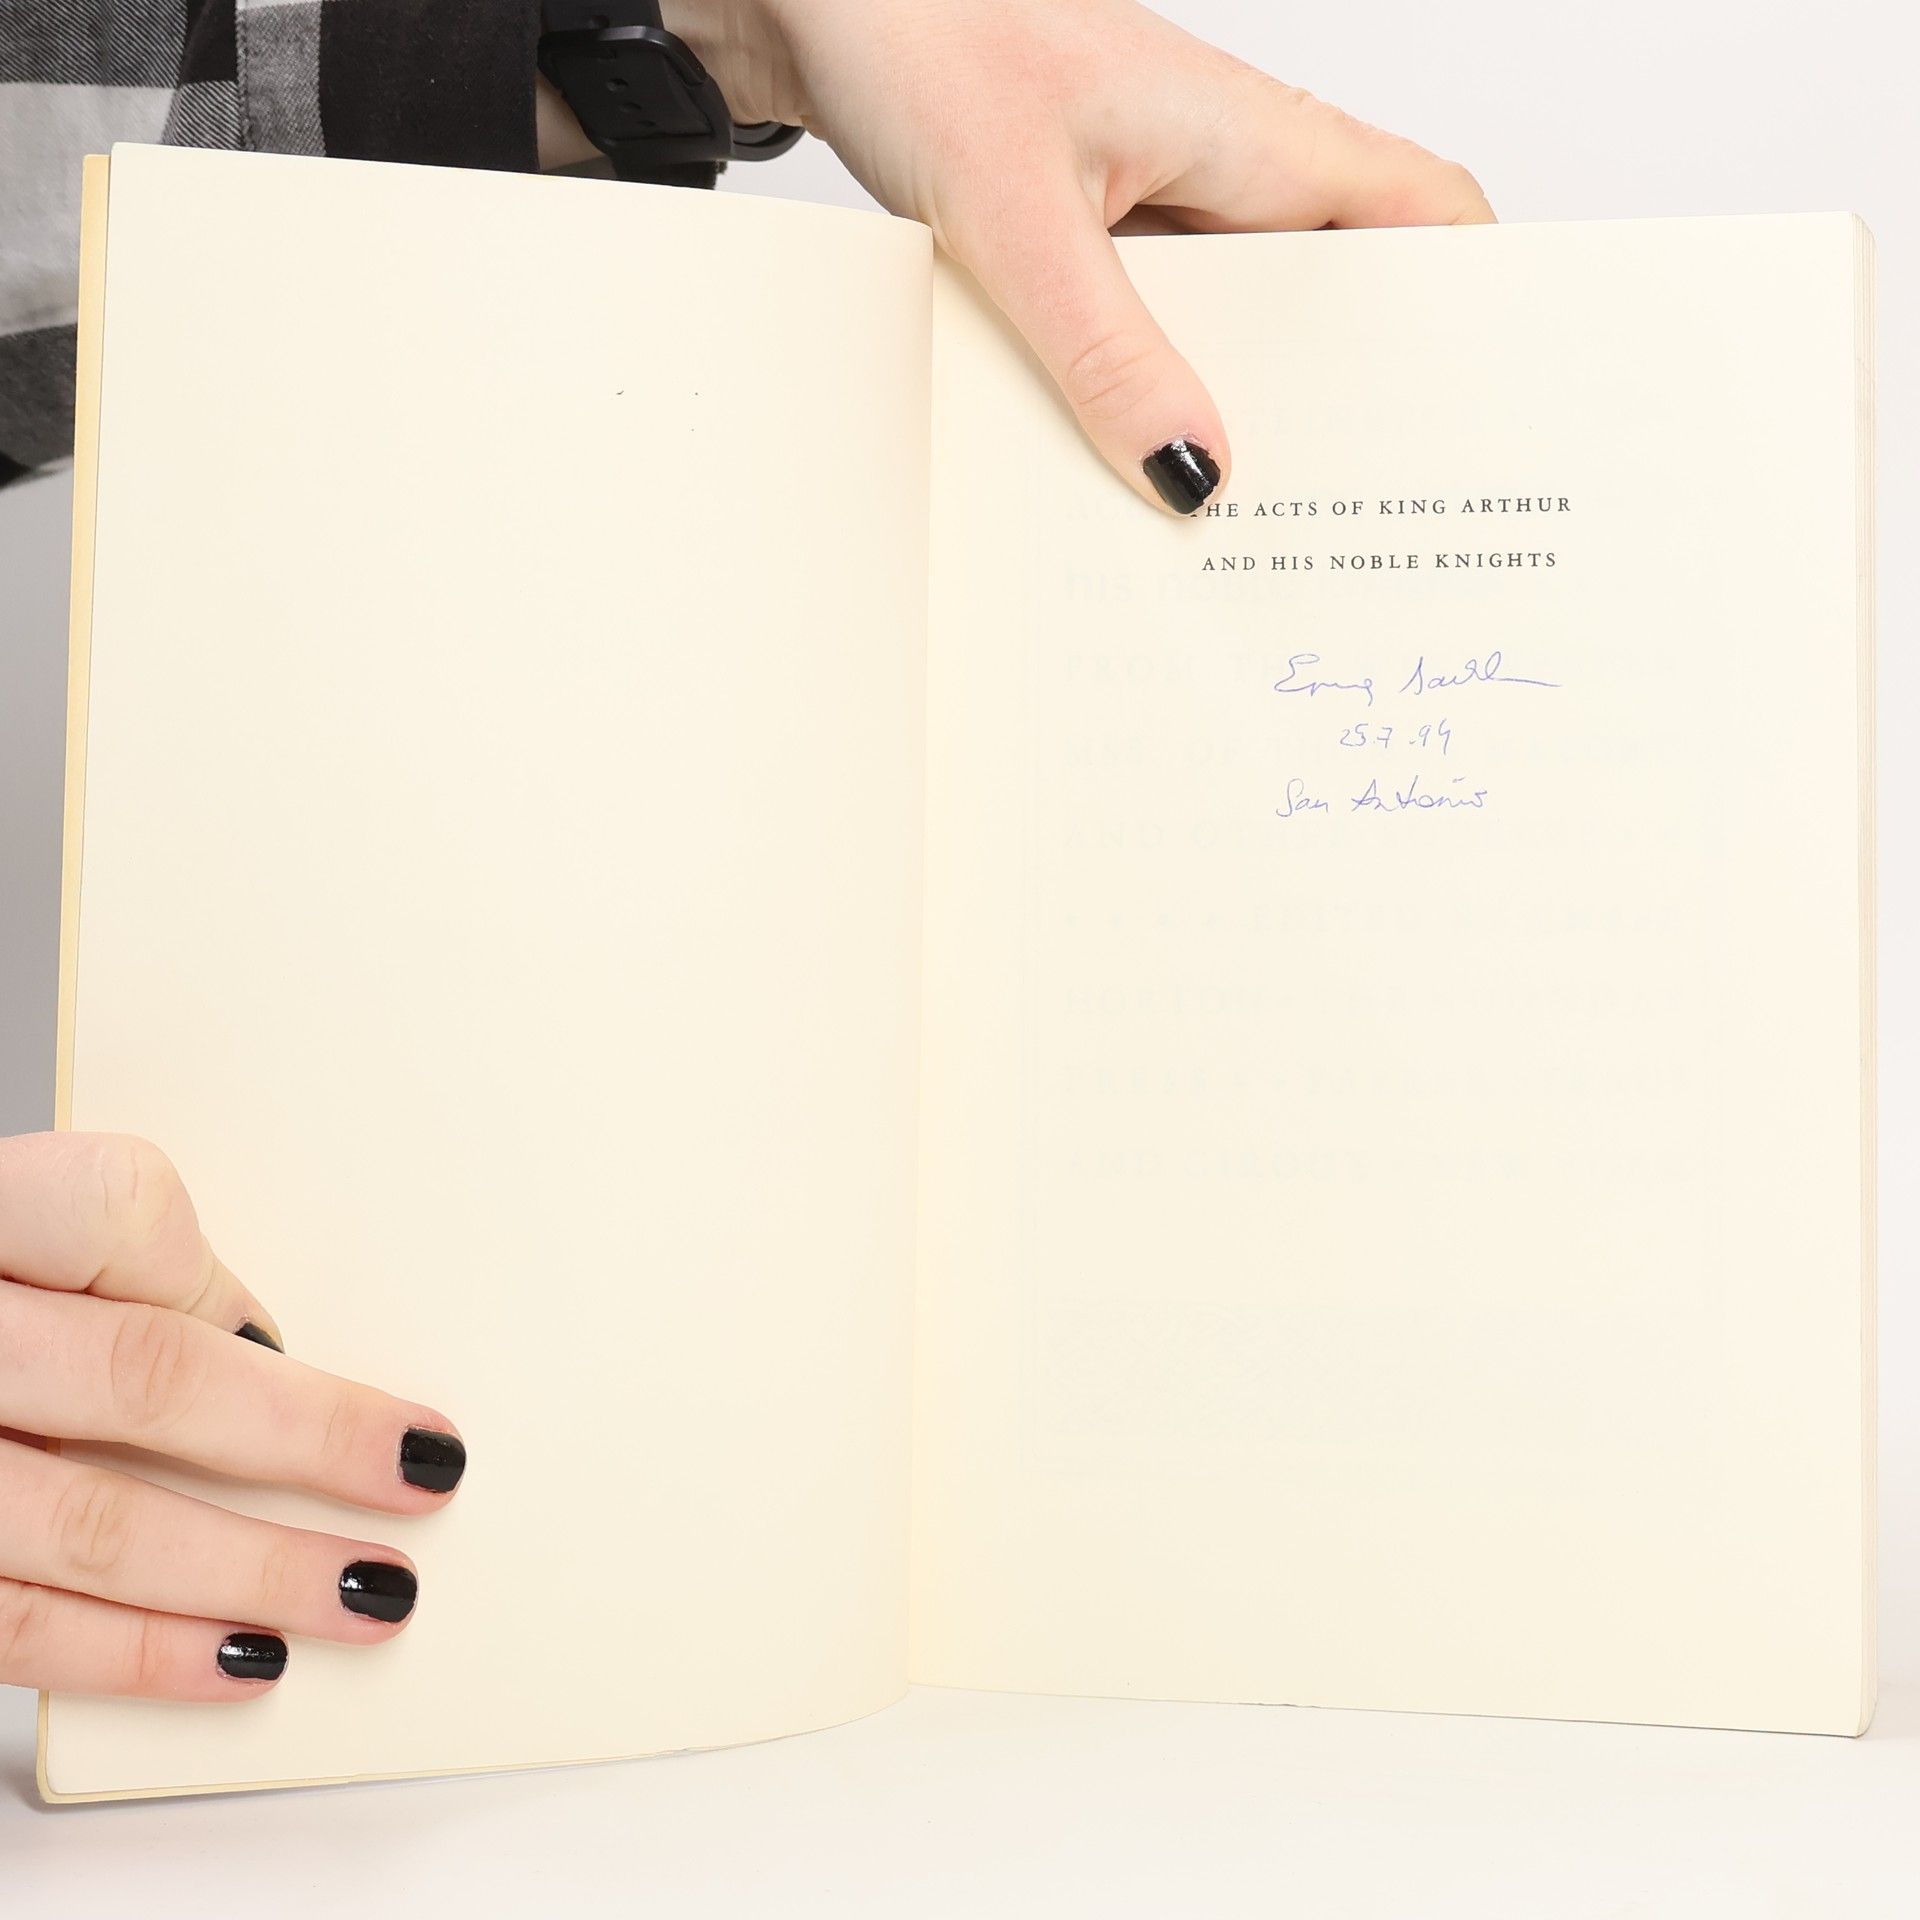 THE ACTS OF KING ARTHUR
AND HIS NOBLE KNIGHTS
25.7.94
San Antonio